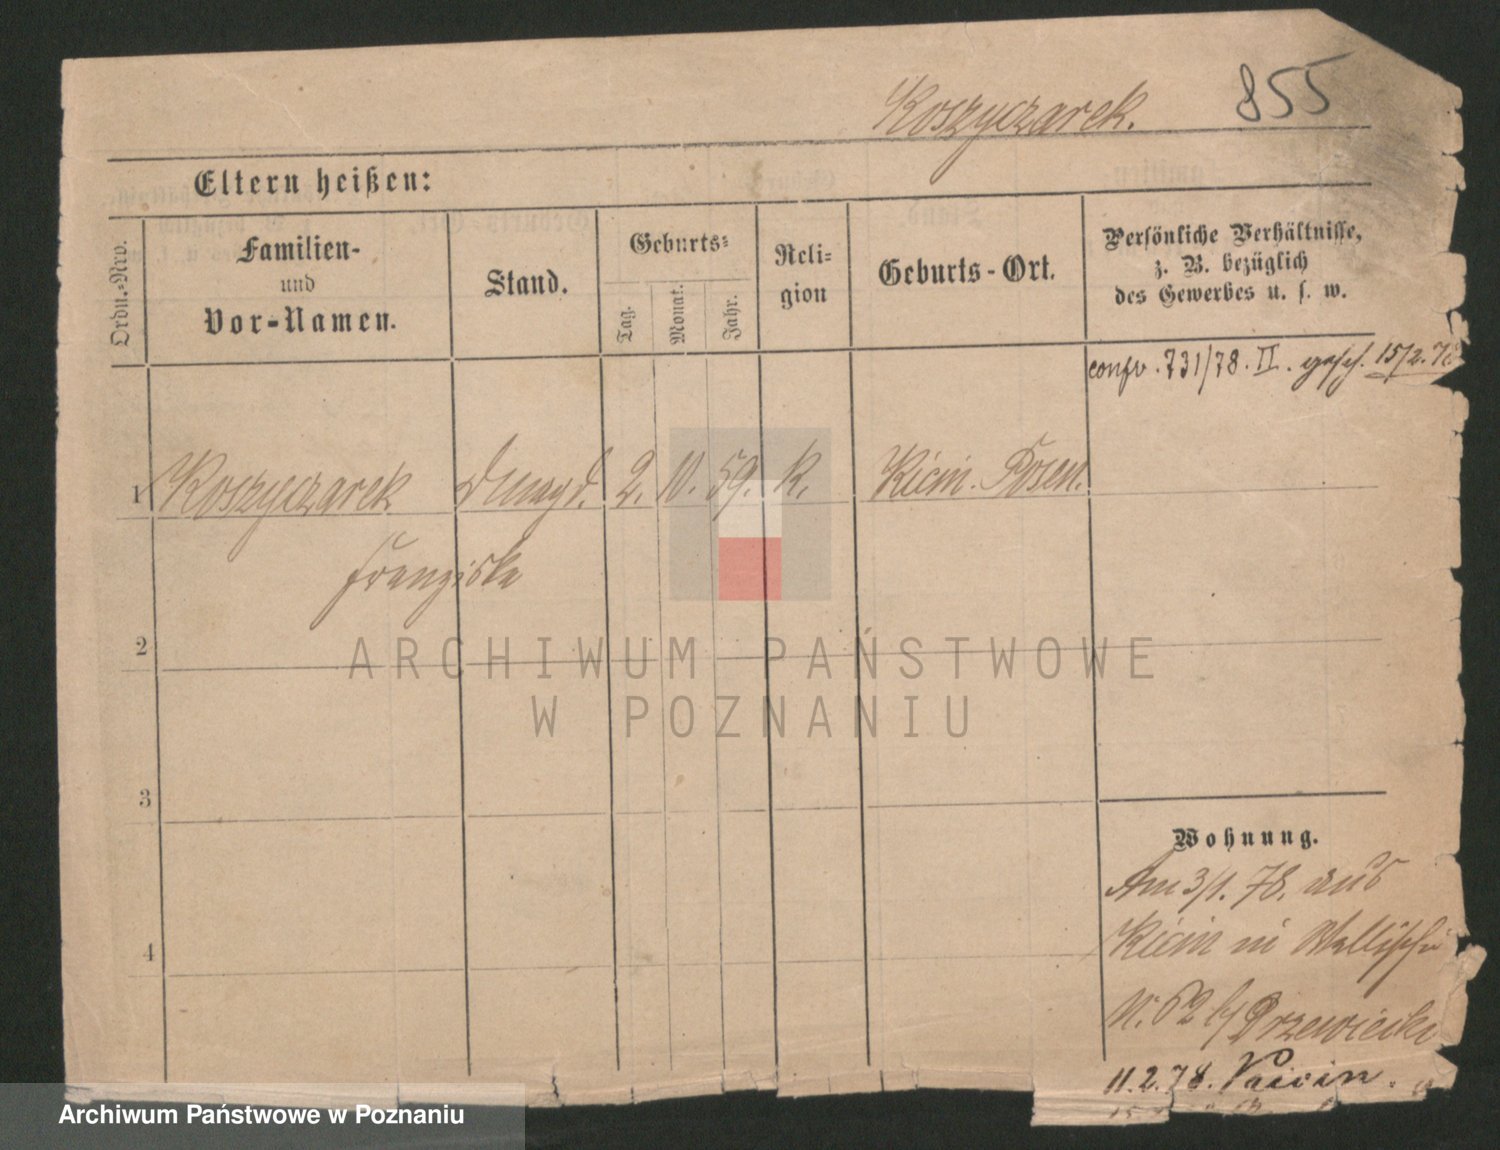 Koszyczarek. 855
Eltern heißen:
Ordn.-Nro.
Familien-
und
Vor-Namen.
Stand.
Geburts-
Tag.
Monat.
Jahr.
Reli-
gion
Geburts-Ort.
Persönliche Verhältnisse,
z. B. bezüglich
des Gewerbes u. s. w.
confr. 731/78. II. gesch. 15/2. 78
1 Koszyczarek Dmagd. 2. 10. 59. k. Kicin. Posen.
Franziska
2
3
4
Wohnung.
Am 3/1. 78. aus
Kicin in Wallischei
N. 62 b/ Drzewiecki
11.2.78. Kicin.
ARCHIWUM PAŃSTWOWE
W POZNANIU
Archiwum Państwowe w Poznaniu